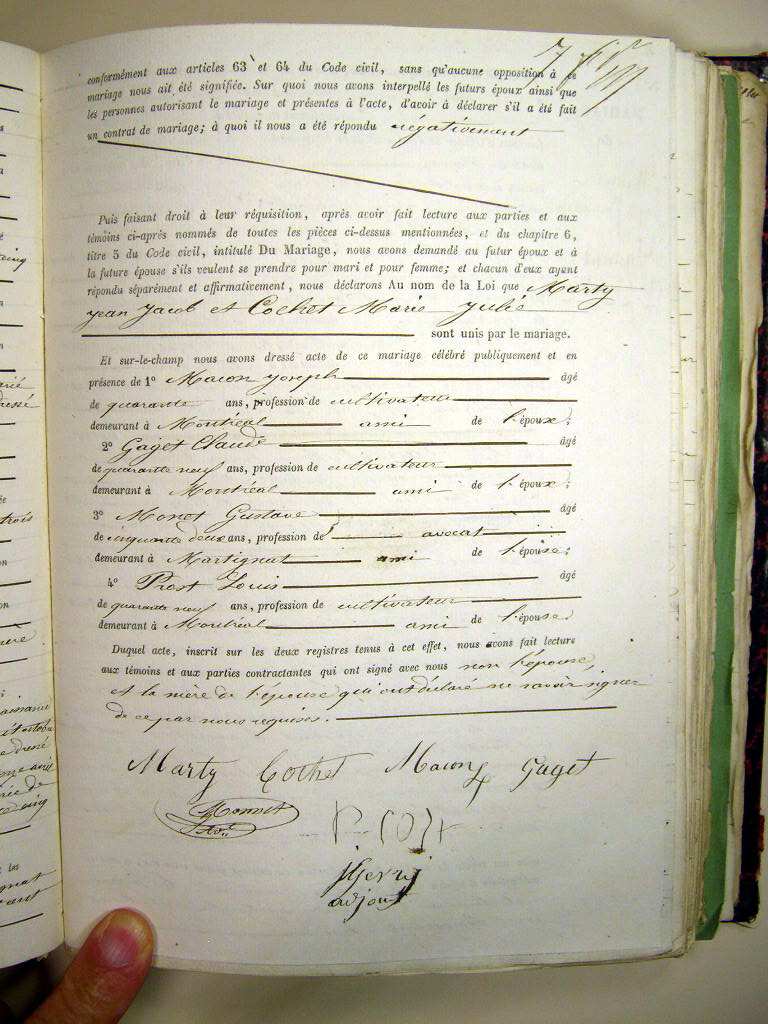 conformément aux articles 63 et 64 du Code civil, sans qu'aucune opposition à ce
mariage nous ait été signifiée. Sur quoi nous avons interpellé les futurs époux ainsi que
les personnes autorisant le mariage et présentes à l'acte, d'avoir à déclarer s'il a été fait
un contrat de mariage; à quoi il nous a été répondu négativement
Puis faisant droit à leur réquisition, après avoir fait lecture aux parties et aux
témoins ci-après nommés de toutes les pièces ci-dessus mentionnées, et du chapitre 6,
titre 5 du Code civil, intitulé Du Mariage, nous avons demandé au futur époux et à
la future épouse s'ils veulent se prendre pour mari et pour femme; et chacun d'eux ayant
répondu séparément et affirmativement, nous déclarons Au nom de la Loi que Marty
jean Jacob et Cochet Marie Julie
sont unis par le mariage.
Et sur-le-champ nous avons dressé acte de ce mariage célébré publiquement et en
présence de 1° Macon Joseph âgé
de quarante ans, profession de cultivateur
demeurant à Montréal ami de l'époux;
2° Gaget Claude âgé
de quarante neuf ans, profession de cultivateur
demeurant à Montréal ami de l'époux;
3° Monet Gustave âgé
de cinquante deux ans, profession de avocat
demeurant à Martignat ami de l'épouse;
4° Prost Louis âgé
de quarante neuf ans, profession de cultivateur
demeurant à Montréal ami de l'épouse
Duquel acte, inscrit sur les deux registres tenus à cet effet, nous avons fait lecture
aux témoins et aux parties contractantes qui ont signé avec nous non l'épouse,
et la mère de l'épouse qui ont déclaré ne savoir signer
de ce par nous requises.
Marty Cochet Macon Gaget
Monnet
adjoint